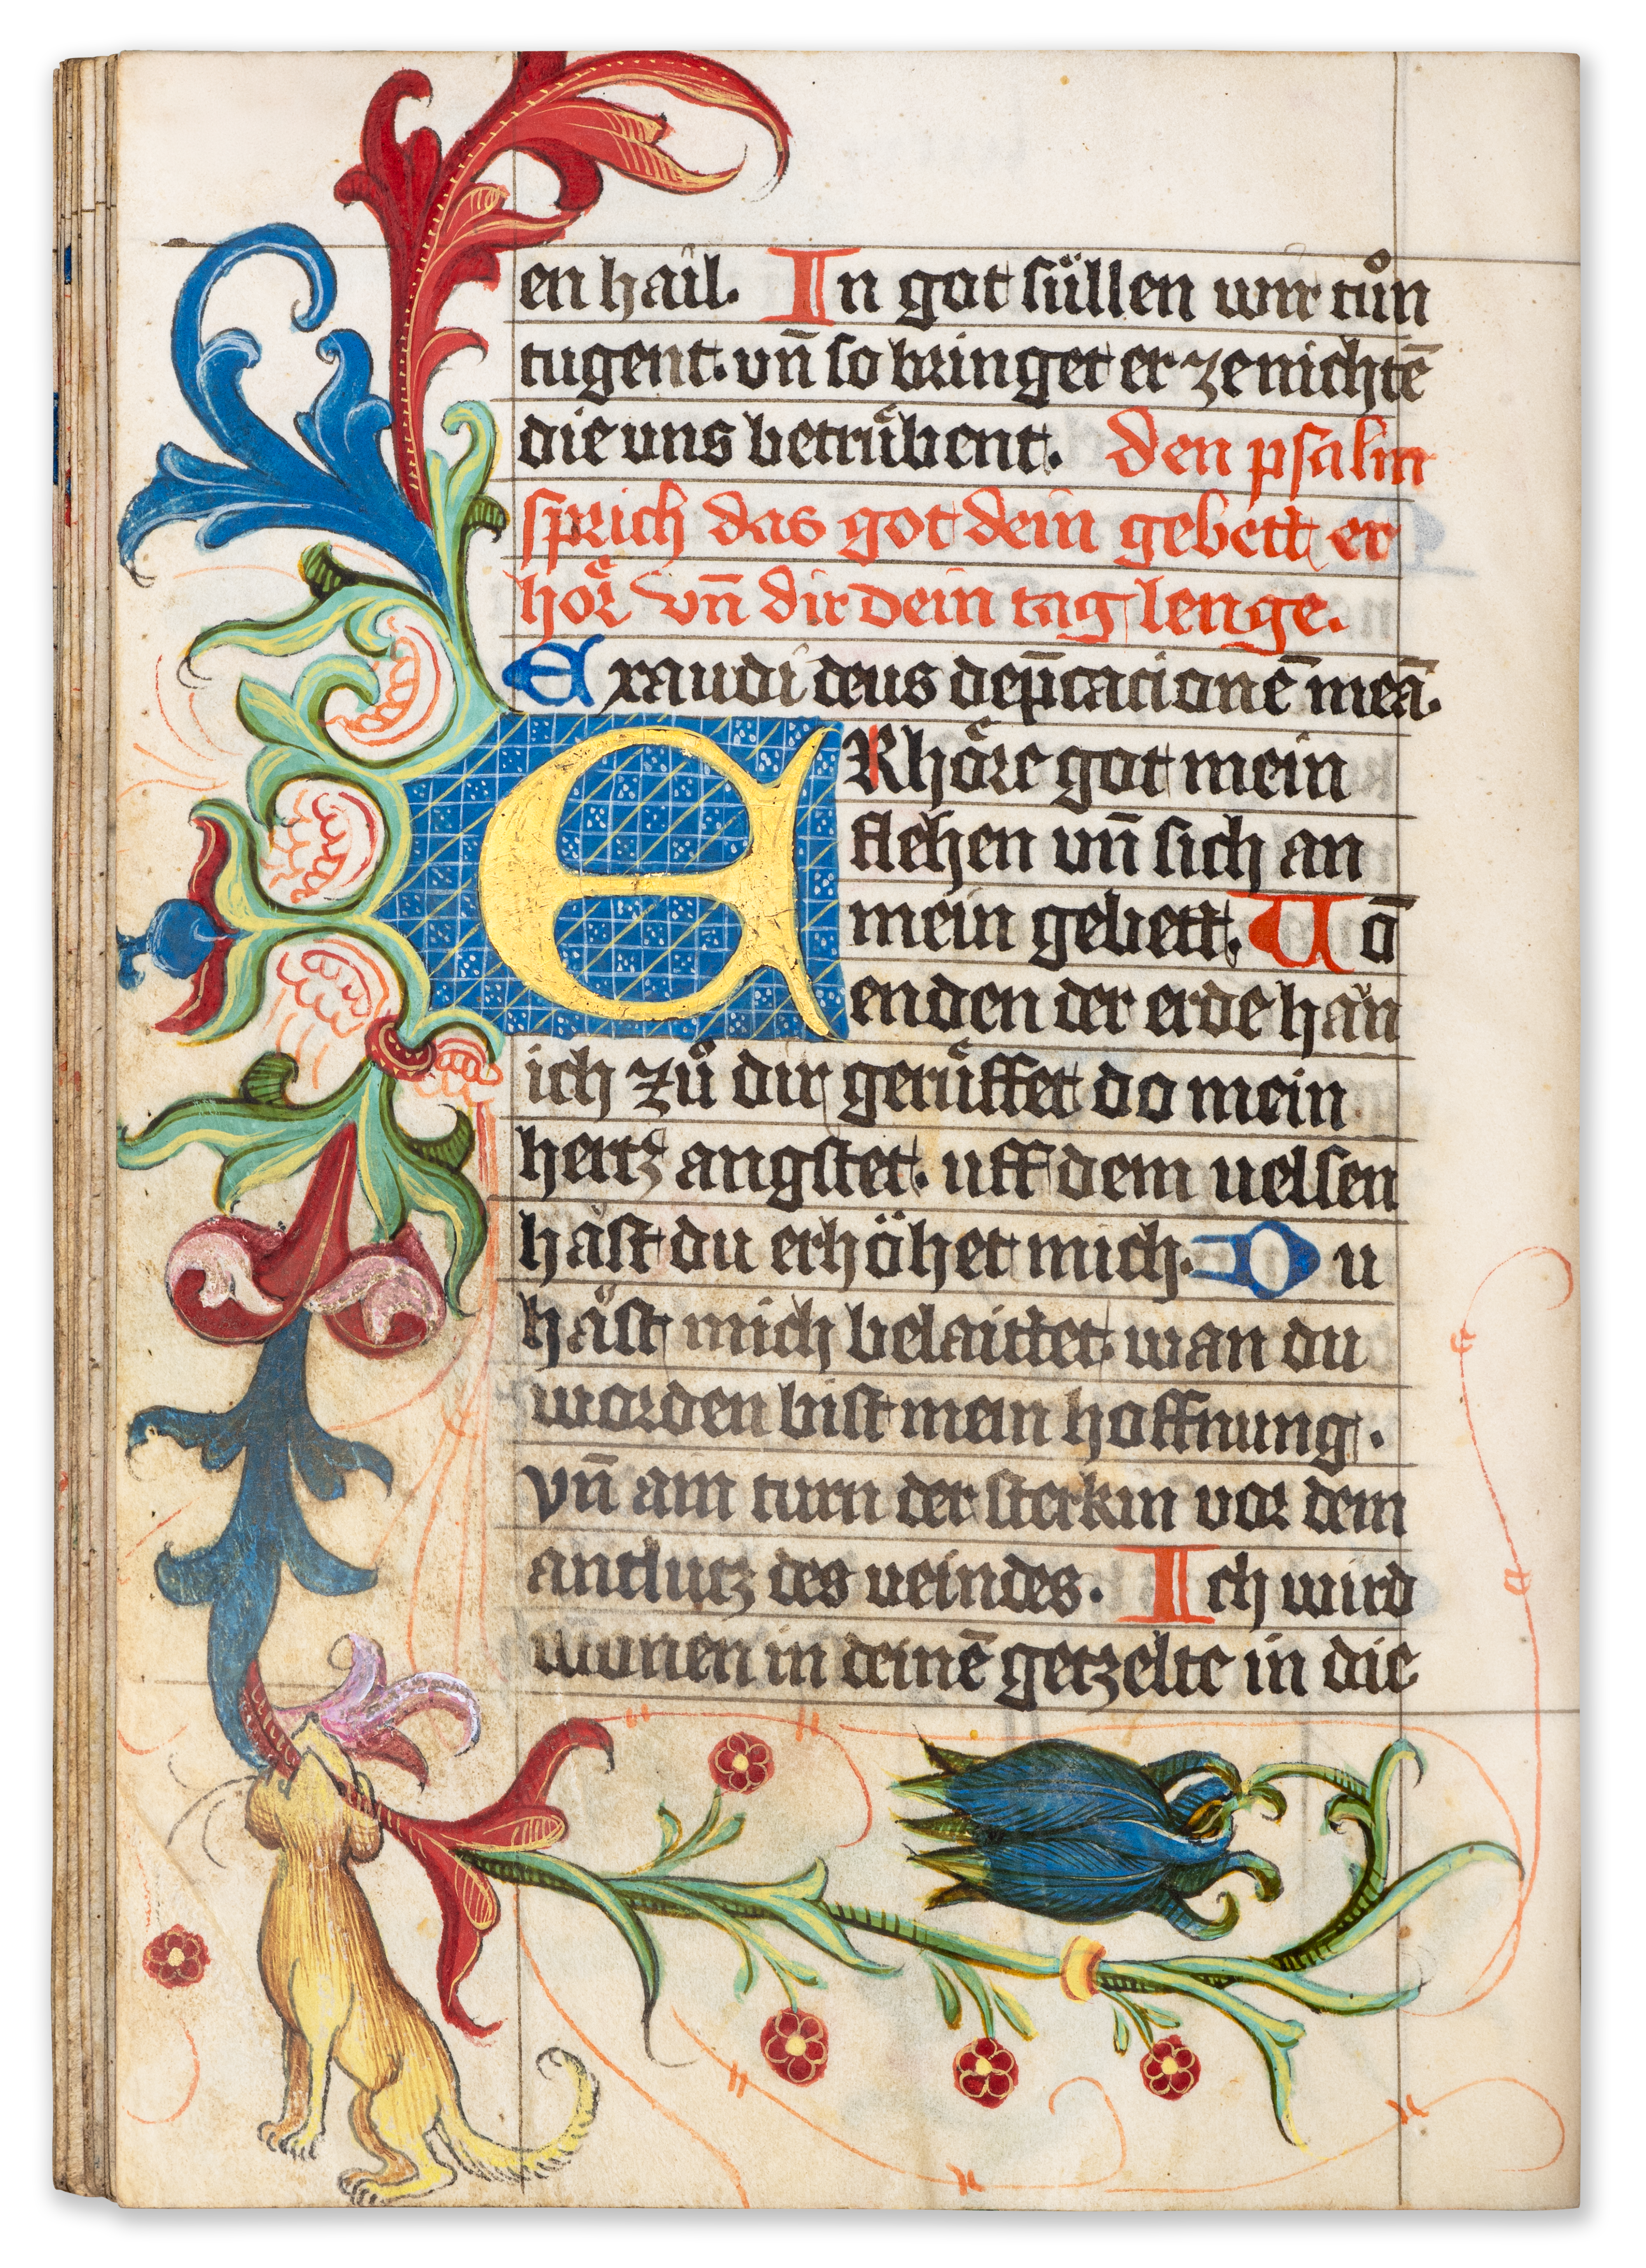 en hail. In got süllen wir tůn
tugent. vn̄ so bringet er ze nichtē
die uns betrůͤbent. den psalm
sprich das got dein gebett er
hoͤr vn̄ dir dein tag lenge.
Exaudi deus dep̄cacionē meā.
ERhoͤre got mein
flehen vn̄ sich an
mein gebett. Uō
enden der erde hān
ich zů dir geruͤffet do mein
hertz angstet. uff dem uelsen
häst du erhöhet mich. Du
häst mich belaittet wan du
worden bist mein hoffnung.
vn̄ ain turn der sterkin vor dem
antlutz des veindes. Ich wird
wonen in deinē getzelte in die